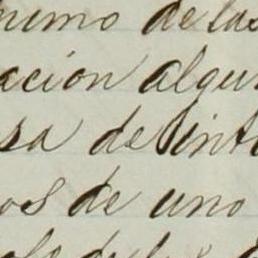 nimo de las
acion algun
sa de inte
os de uno